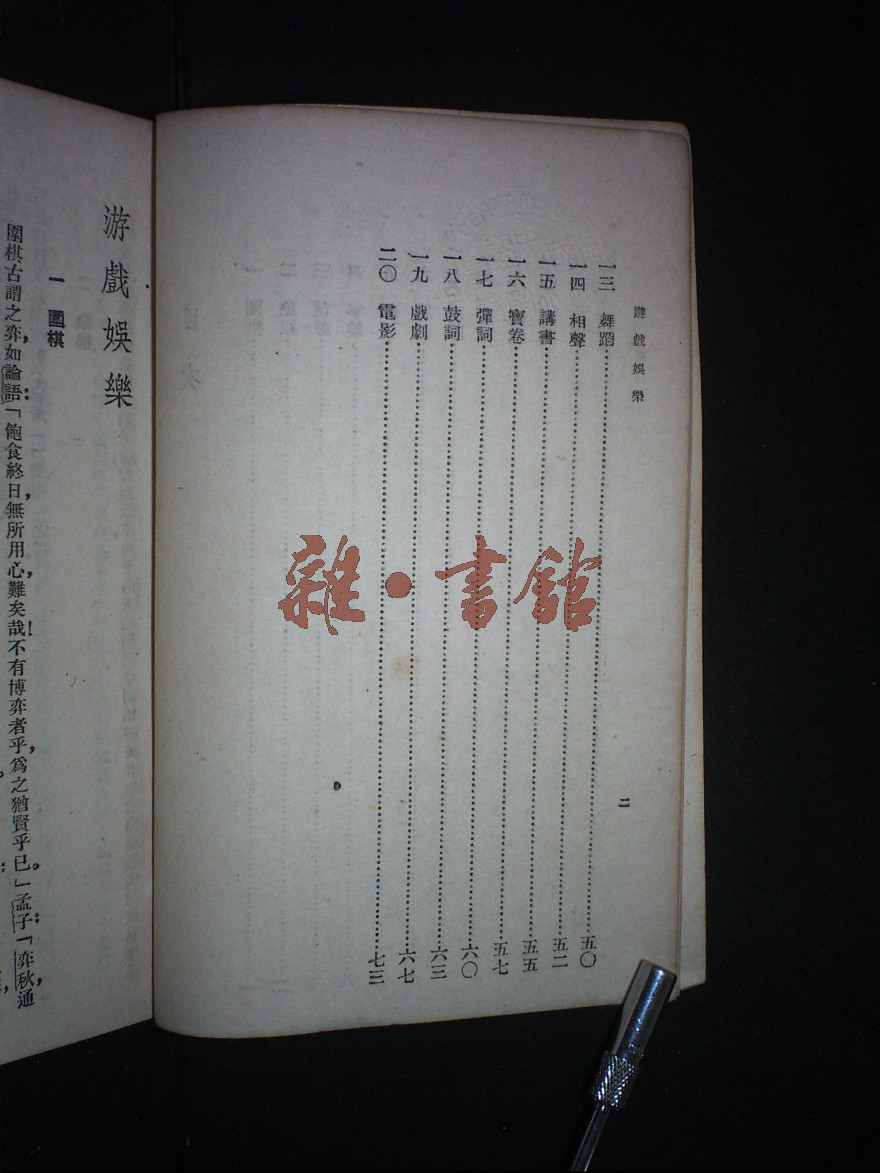 遊戲娛樂
一三　舞蹈……五〇
一四　相聲……五二
一五　講書……五五
一六　寶卷……五七
一七　彈詞……六〇
一八　鼓詞……六三
一九　戲劇……六七
二〇　電影……七三
二
雜·書館
游戲娛樂
一　圍棋
圍棋古謂之弈，如論語：「飽食終日，無所用心，難矣哉！不有博弈者乎，爲之猶賢乎已。」孟子：「弈秋，通